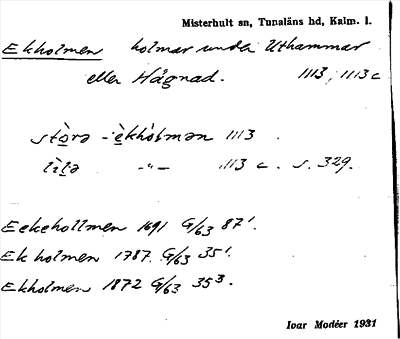 Misterhult sn, Tunaläns hd, Kalm. l.
Ekholmen holmar under Uthammar
eller Hågnad. 1113, 1113 c
stòrə - èkhòlmən 1113
lìlə -"- 1113 c. s. 329.
Eckehollmen 1691 G/63 87¹.
Ekholmen 1787 G/63 35¹.
Ekholmen 1872 G/63 35³.
Ivar Modéer 1931